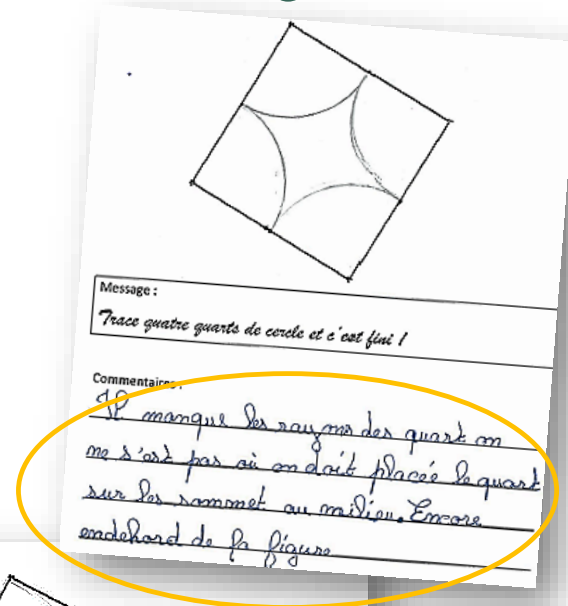 Message :
Trace quatre quarts de cercle et c'est fini !
Commentaires :
Il manque les rayons des quart on
ne s'est pas où on doit placée le quart
sur les sommet au milieu. Encore
endehord de la figure